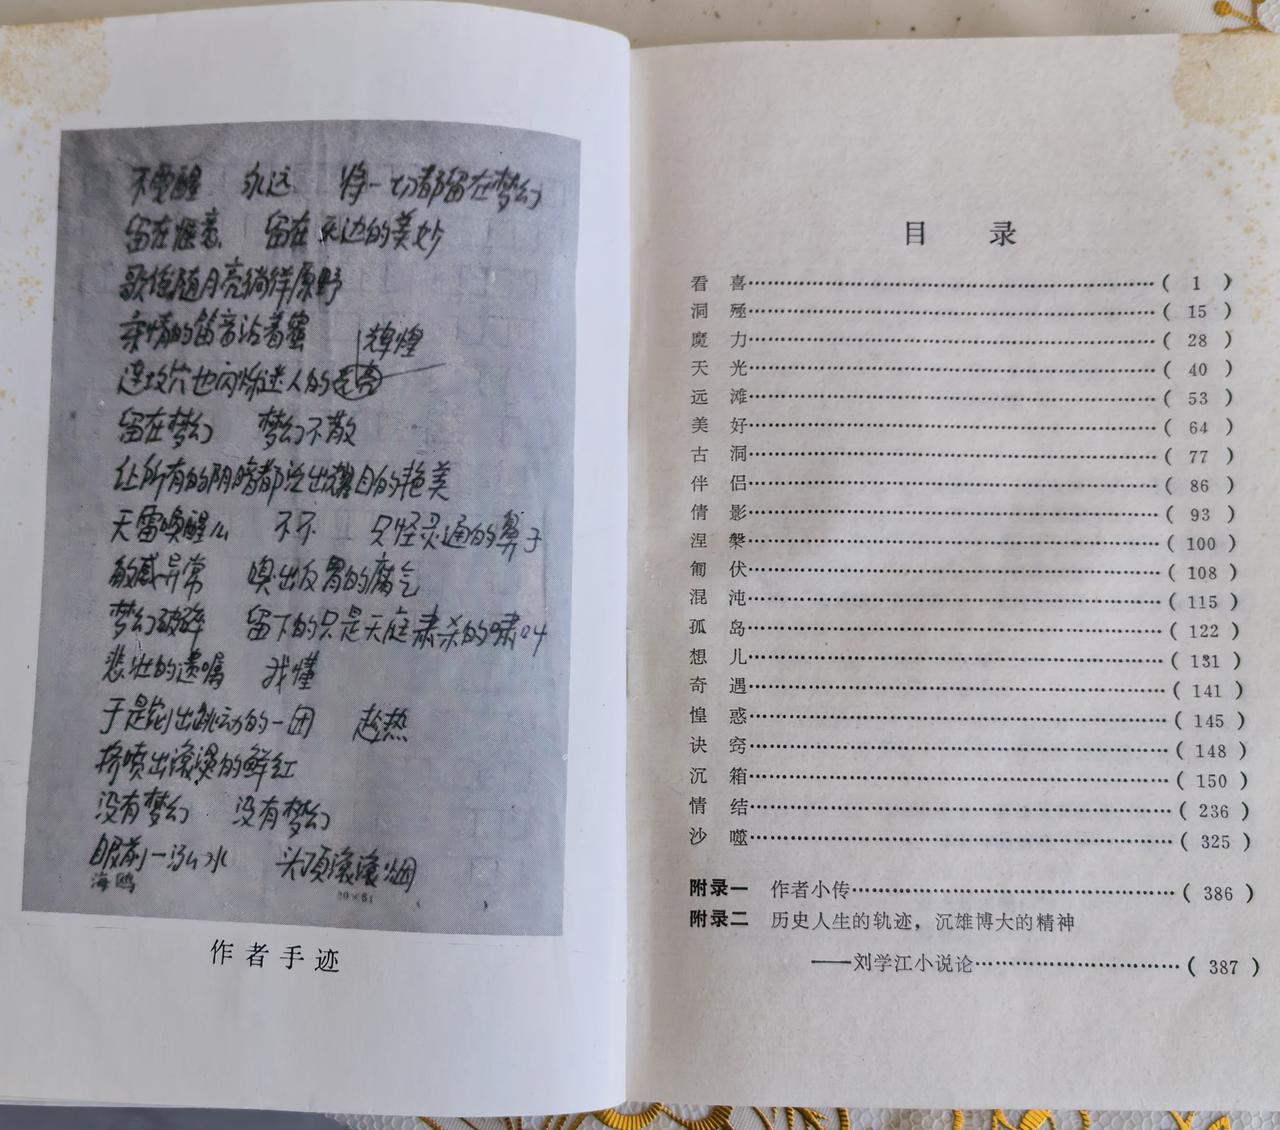 不要醒 永远 将一切都留在梦幻
留在惬意、 留在无边的美妙
歌谣随月亮徜徉原野
亲情的笛音沾着蜜
辉煌
连坟穴也闪烁迷人的
留在梦幻 梦幻不散
让所有的阴暗都泛出耀目的艳美
天雷唤醒么 不不 只怪灵通的鼻子
敏感异常 嗅出反胃的腐气
梦幻破碎 留下的只是天庭肃杀的啸叫
悲壮的遗嘱 我懂
于是剜出跳动的一团 趁热
挤喷出滚烫的鲜红
没有梦幻 没有梦幻
眼前一泓水 头顶滚滚烟
海鸥
作者手迹
目 录
看 喜……( 1 )
洞 殛……( 15 )
魔 力……( 28 )
天 光……( 40 )
远 滩……( 53 )
美 好……( 64 )
古 洞……( 77 )
伴 侣……( 86 )
倩 影……( 93 )
涅 槃……( 100 )
匍 伏……( 108 )
混 沌……( 115 )
孤 岛……( 122 )
想 儿……( 131 )
奇 遇……( 141 )
惶 惑……( 145 )
诀 窍……( 148 )
沉 箱……( 150 )
情 结……( 236 )
沙 噬……( 325 )
附录一 作者小传……( 386 )
附录二 历史人生的轨迹，沉雄博大的精神
——刘学江小说论……( 387 )